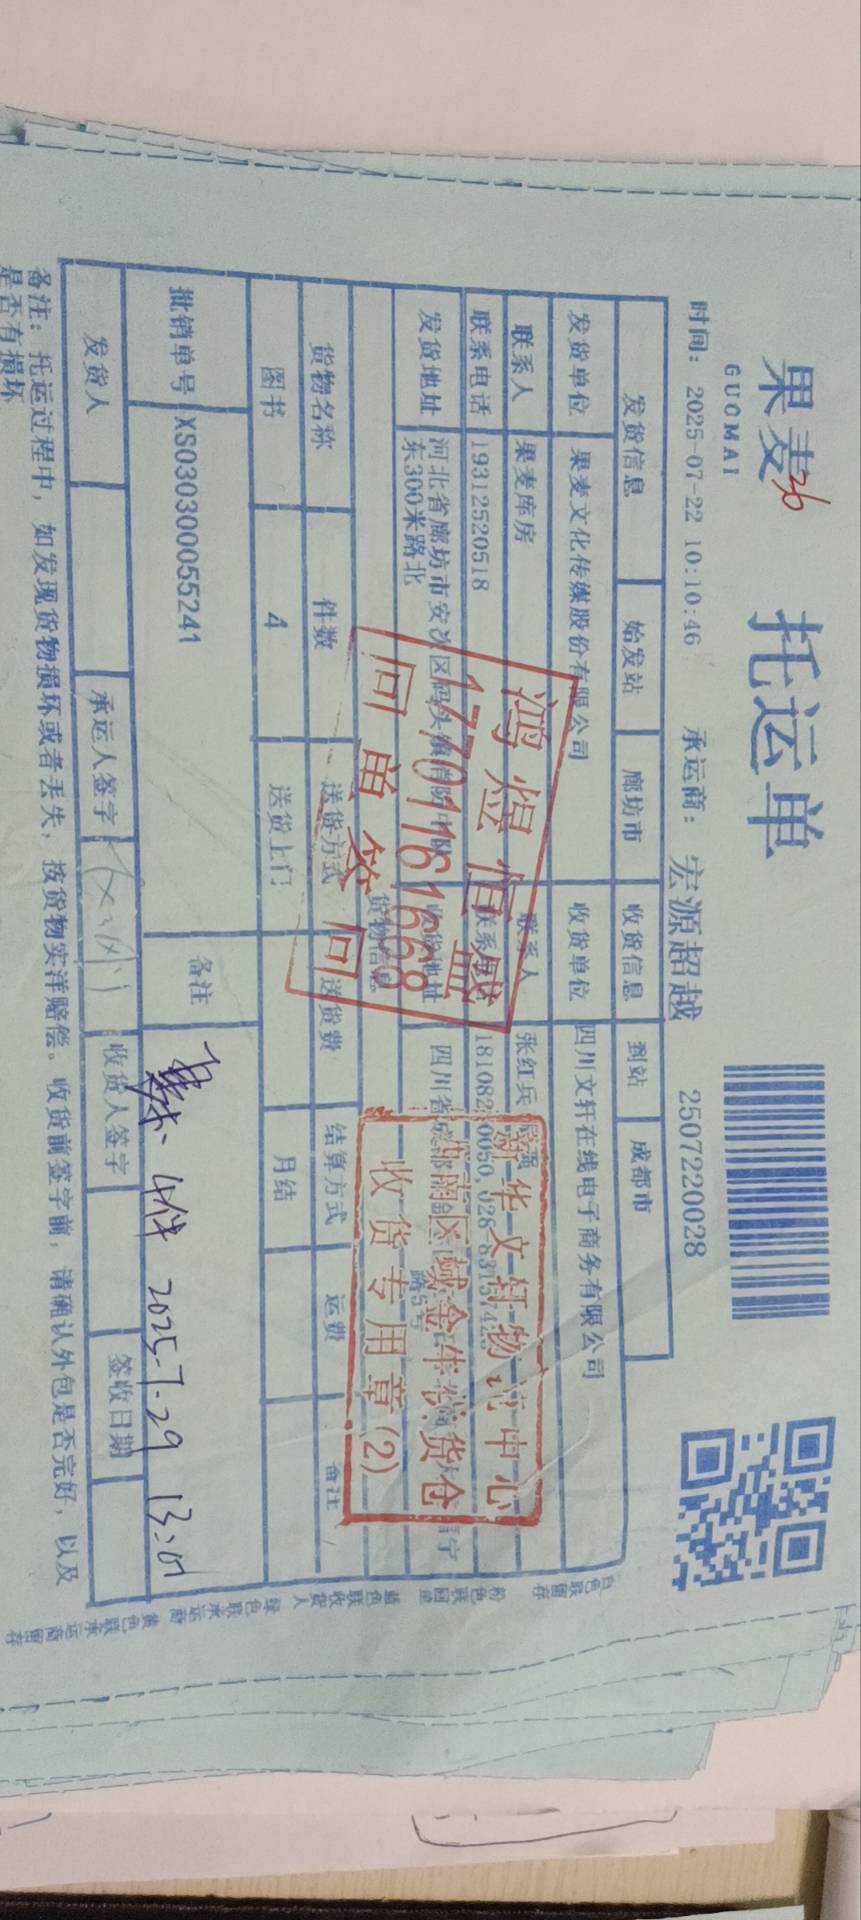 果麦 托运单
GUOMAI
时间: 2025-07-22 10:10:46 承运商: 宏源超越 2507220028
发货信息 始发站 廊坊市 收货信息 到站 成都市
发货单位 果麦文化传媒股份有限公司 收货单位 四川文轩在线电子商务有限公司
联系人 果麦库房 联系人 张红兵
联系电话 19312520518 联系电话
发货地址 河北省廊坊市安次区码头镇消防中队东300米路北 收货地址 四川省成都
货物信息
货物名称 件数 送货方式 送货费 结算方式 运费 备注
图书 4 送货上门 月结
批销单号 XS030300055241 备注
4件 2025.7.29
发货人 承运人签字 收货人签字 签收日期
备注: 托运过程中, 如发现货物损坏或者丢失, 按货物实洋赔偿。收货前签字前, 请确认外包是否完好, 以及
是否有损坏
鸿煜恒盛
17701161668
回单签回
新华文轩物流中心
收货专用章(2)
白色联留存 粉色联回单 蓝色联收货人 绿色联承运商 黄色联承运商留存